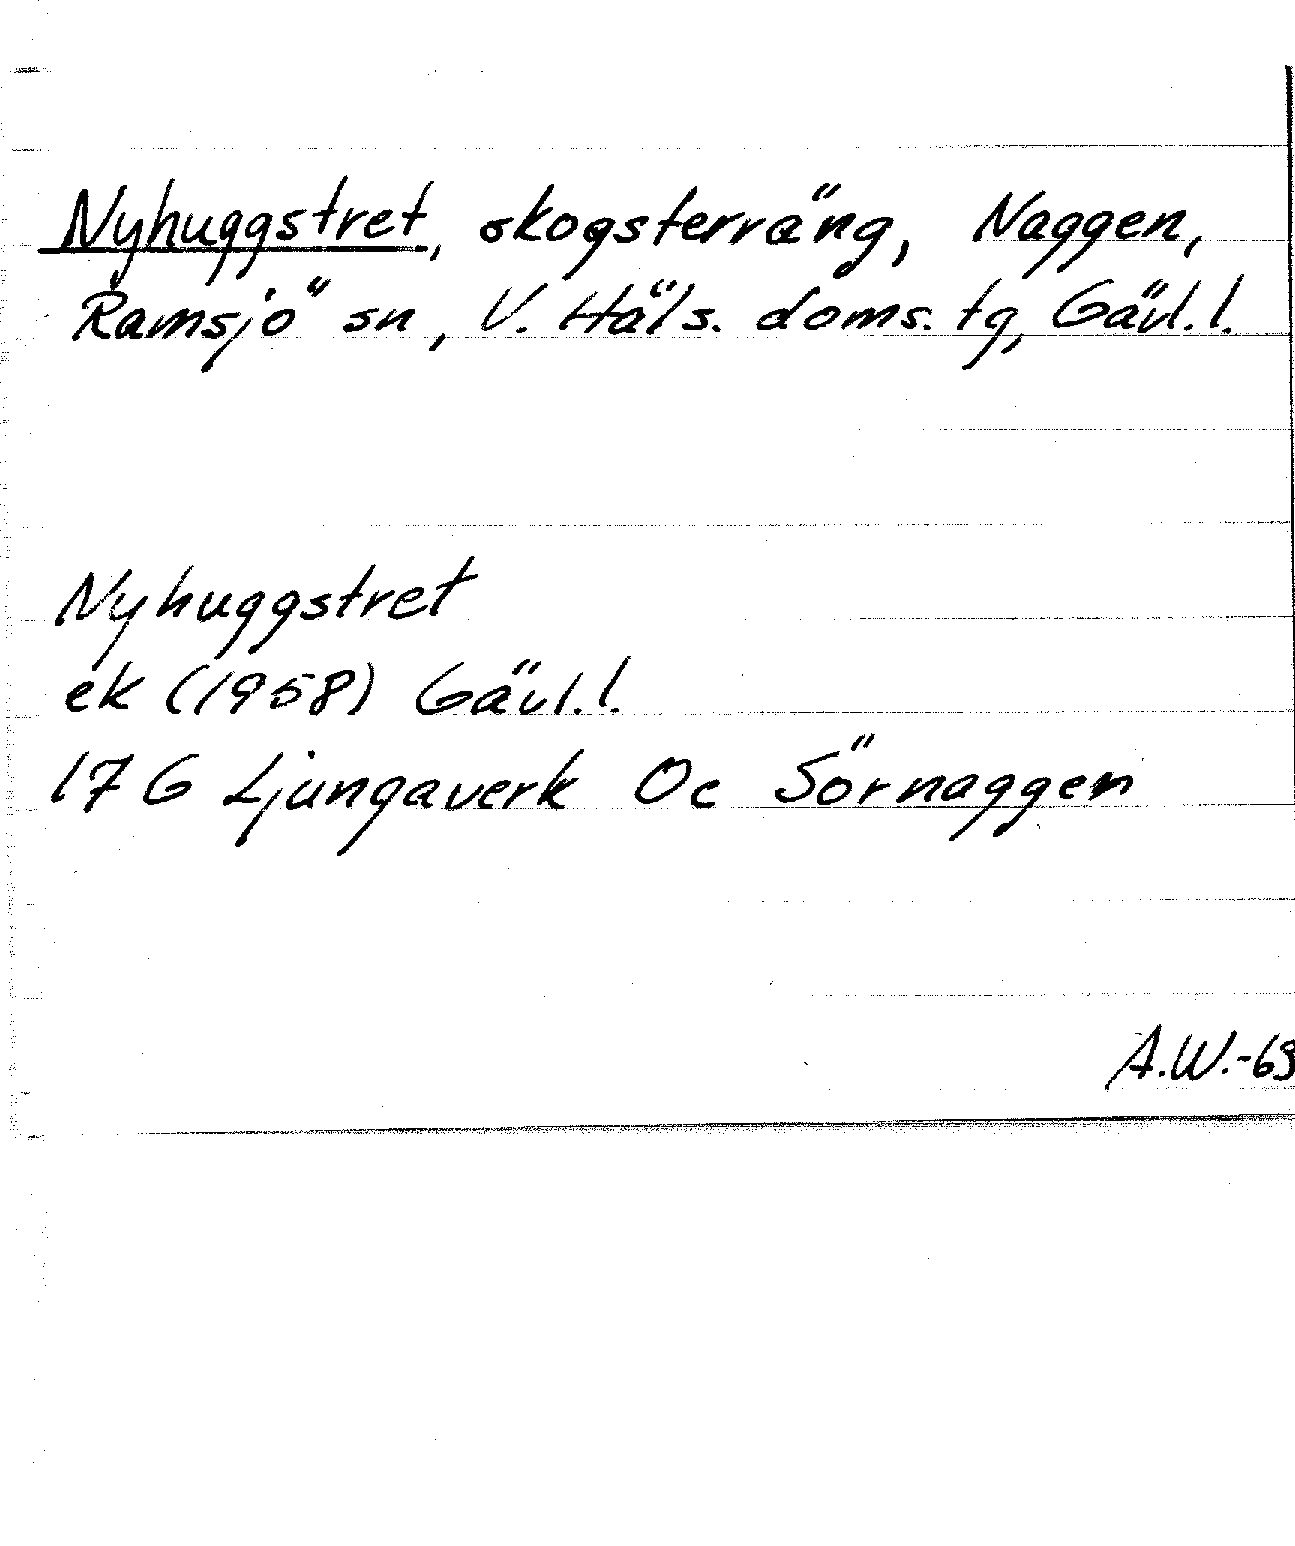 Nyhuggstret, skogsterräng, Naggen,
Ramsjö sn, V. Häls. doms. tg, Gävl.l.
Nyhuggstret
ek (1958) Gävl.l.
17 G Ljungaverk Oc Sörnaggen
A.W.-69